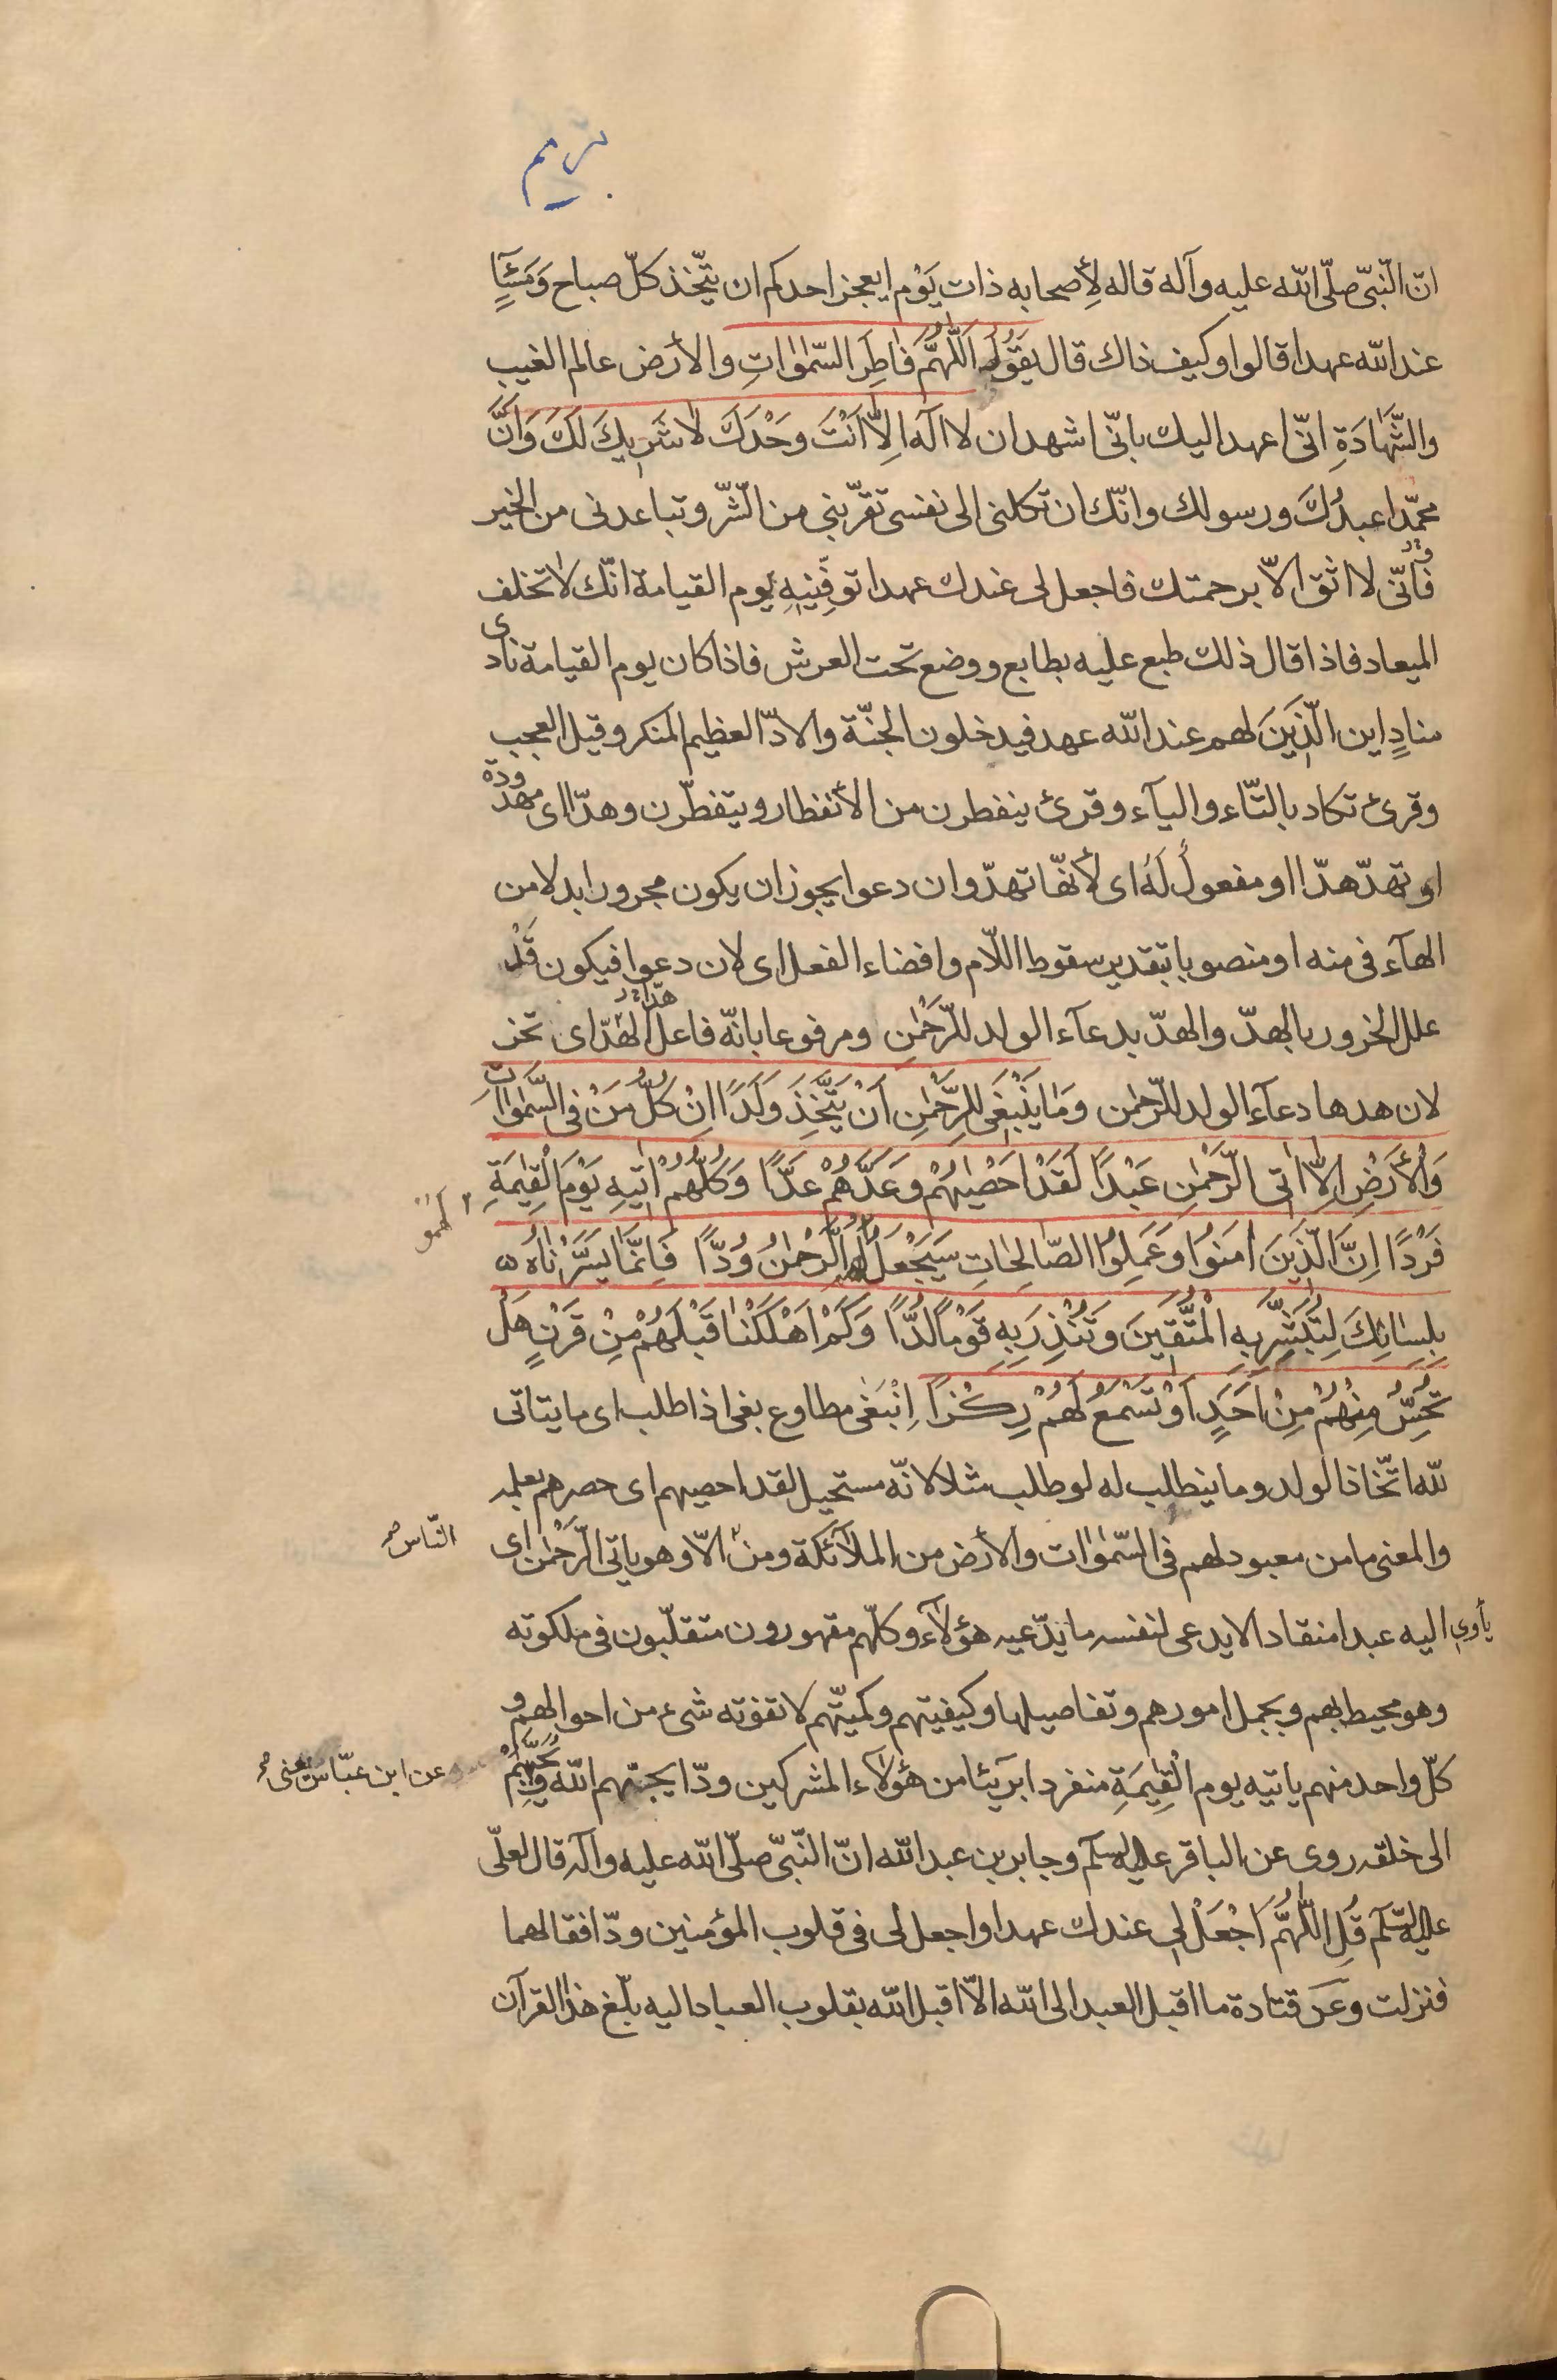 مريم
انّ النّبىّ صلّى اللّه عليه وآله قاله لِأصحابه ذات يَوْم ايعجز احدكم ان يتّخذ كلّ صباح وَمَسَآءٍ
عند اللّه عهدا قالوا وكيف ذاك قال يقَوُل اَللّٰهُمَّ فٰاطِرَ السَّمٰوٰاتِ والأرض عالم الغيب
والشَّهٰادَةِ انّى اعهد اليك بانّى اشهد ان لا اله اِلّا اَنْتَ وحْدَكَ لٰا شَرٖيكَ لَكَ وَاَنَّ
محمّدا عبدُكَ ورسولك وانّك ان تكلنى الى نفسى تقرّبنى من الشّرّ وتباعدنى من الخير
فانّى لا اثق الّا برحمتك فاجعل لى عندك عهدا توفّينيهِ يوم القيامة انّك لا تخلف
الميعاد فاذا قال ذلك طبع عليه بطابع ووضع تحت العرش فاذا كان يوم القيامة نادى
منادٍ اين الّذٖينَ لهم عند اللّه عهد فيدخلون الجنّة والادّ العظيم المنكر وقيل العجب
وقرئ تكاد بالتّاء والياء وقرئ ينفطرن من الأنفطار ويتفطّرن وهدّا اى مهدودة
او تهدّ هدّا او مفعولٌ لَهُ اى لأنّها تهدّ وان دعوا يجوز ان يكون مجرورا بدلا من
الهآء فى منه او منصوبا بتقدير سقوط اللّام وافضاء الفعل اى لان دعوا فيكون قَدْ
علل الخرور بالهدّ والهدّ بدعآء الولد للرّحْمٰنِ ومرفوعا بانّه فاعل هدّا اى تخر
لان هدها دعآء الولد للرّحمٰن وَمٰا يَنْبَغٖى لِلرَّحْمٰنِ اَنْ يَتَّخِذَ وَلَدًا اِنْ كُلُّ مَنْ فِى السَّمٰوٰاتِ
وَالْأَرْضِ اِلّٰا اٰتِى الرَّحْمٰنِ عَبْدًا لَقَدْ اَحْصٰيهُمْ وَعَدَّهُمْ عَدًّا وَكُلُّهُمْ اٰتٖيهِ يَوْمَ الْقِيٰمَةِ
فَرْدًا اِنَّ الَّذٖينَ اٰمَنُوا وَعَمِلُوا الصّٰالِحٰاتِ سَيَجْعَلُ لَهُمُ الرَّحْمٰنُ وُدًّا فَاِنَّمٰا يَسَّرْنٰاهُ
بِلِسٰانِكَ لِتُبَشِّرَ بِهِ الْمُتَّقٖينَ وَتُنْذِرَ بِهِ قَوْمًا لُدًّا وَكَمْ اَهْلَكْنٰا قَبْلَهُمْ مِنْ قَرْنٍ هَلْ
تُحِسُّ مِنْهُمْ مِنْ اَحَدٍ اَوْ تَسْمَعُ لَهُمْ رِكْزًا اِنْبَغٰى مطاوع بغى اذا طلب اى ما يتاتى
للّه اتّخاذ الولد وما ينطلب له لو طلب مثلا لانّه مستحيل لقد احصيهم اى حصرهم بعلمه
والمعنى ما من معبود لهم فى السّمٰوٰات والأرض من الملآئكة ومن الّا وهو ياتى الرّحْمٰن اى
النّاس
يأوى اليه عبدا منقادا لا يدعى لنفسه ما يدّعيه هؤلآء وكلّهم مقهورون متقلّبون فى ملكوته
وهو محيط بهم وبجمل امورهم وتفاصيلها وكيفيتهم وكميّتهم لا تفوته شىء من احوالهم و
كلّ واحد منهم ياتيه يوم الْقِيٰمَةِ منفردا بريئا من هؤلآء المشركين ودّا يحبّهم اللّه ويحبّبهم
عن ابن عبّاس يعنى
الى خلقه روى عن الباقر عليه السلم وجابر بن عبد اللّه انّ النّبىّ صلّى اللّه عليه وآله قال لعلىّ
عليه السّلم قُلِ اللّٰهُمَّ اَجْعَلْ لى عندك عهدا واجعل لى فى قلوب المؤمنين ودّا فقالهما
فنزلت وعَن قتادة ما اقبل العبد الى اللّه الّا اقبل اللّه بقلوب العباد اليه بلّغ هذا القرآن